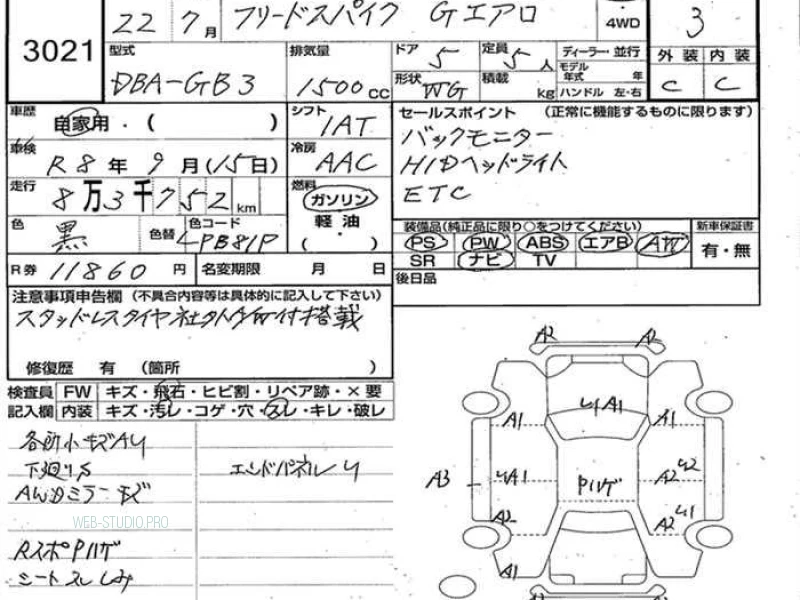 3021
22 7月 フリードスパイク Gエアロ 4WD 3
型式 DBA-GB3
排気量 1500cc
ドア 5 定員 5人
形状 WG 積載 kg
ディーラー・並行
モデル年式 年
ハンドル 左・右
外装 内装
C C
車歴 自家用・( )
シフト IAT
車検 R8年9月(15日)
冷房 AAC
走行 8万3千752km
燃料 ガソリン
軽油
( ・ )
色 黒 色替 色コード
R券 11860円 名変期限 月 日
セールスポイント (正常に機能するものに限ります)
バックモニター
HIDヘッドライト
ETC
装備品(純正品に限り○をつけてください) 新車保証書
PS PW ABS エアB AW 有・無
SR ナビ TV
後日品
注意事項申告欄 (不具合内容等は具体的に記入して下さい)
修復歴 有 (箇所 )
検査員 FW キズ・飛石・ヒビ割・リペア跡・×要
記入欄 内装 キズ・汚レ・コゲ・穴・スレ・キレ・破レ
各所小キズAU
下廻りS エンドパネルU
AWミラーキズ
WEB-STUDIO.PRO
RスポPハゲ
シートスレしみ
A2 A2
U1A1
A1 A1
A3 U1A1 Pハゲ A2 U2
A2 A2 U1
A1
A2 A2